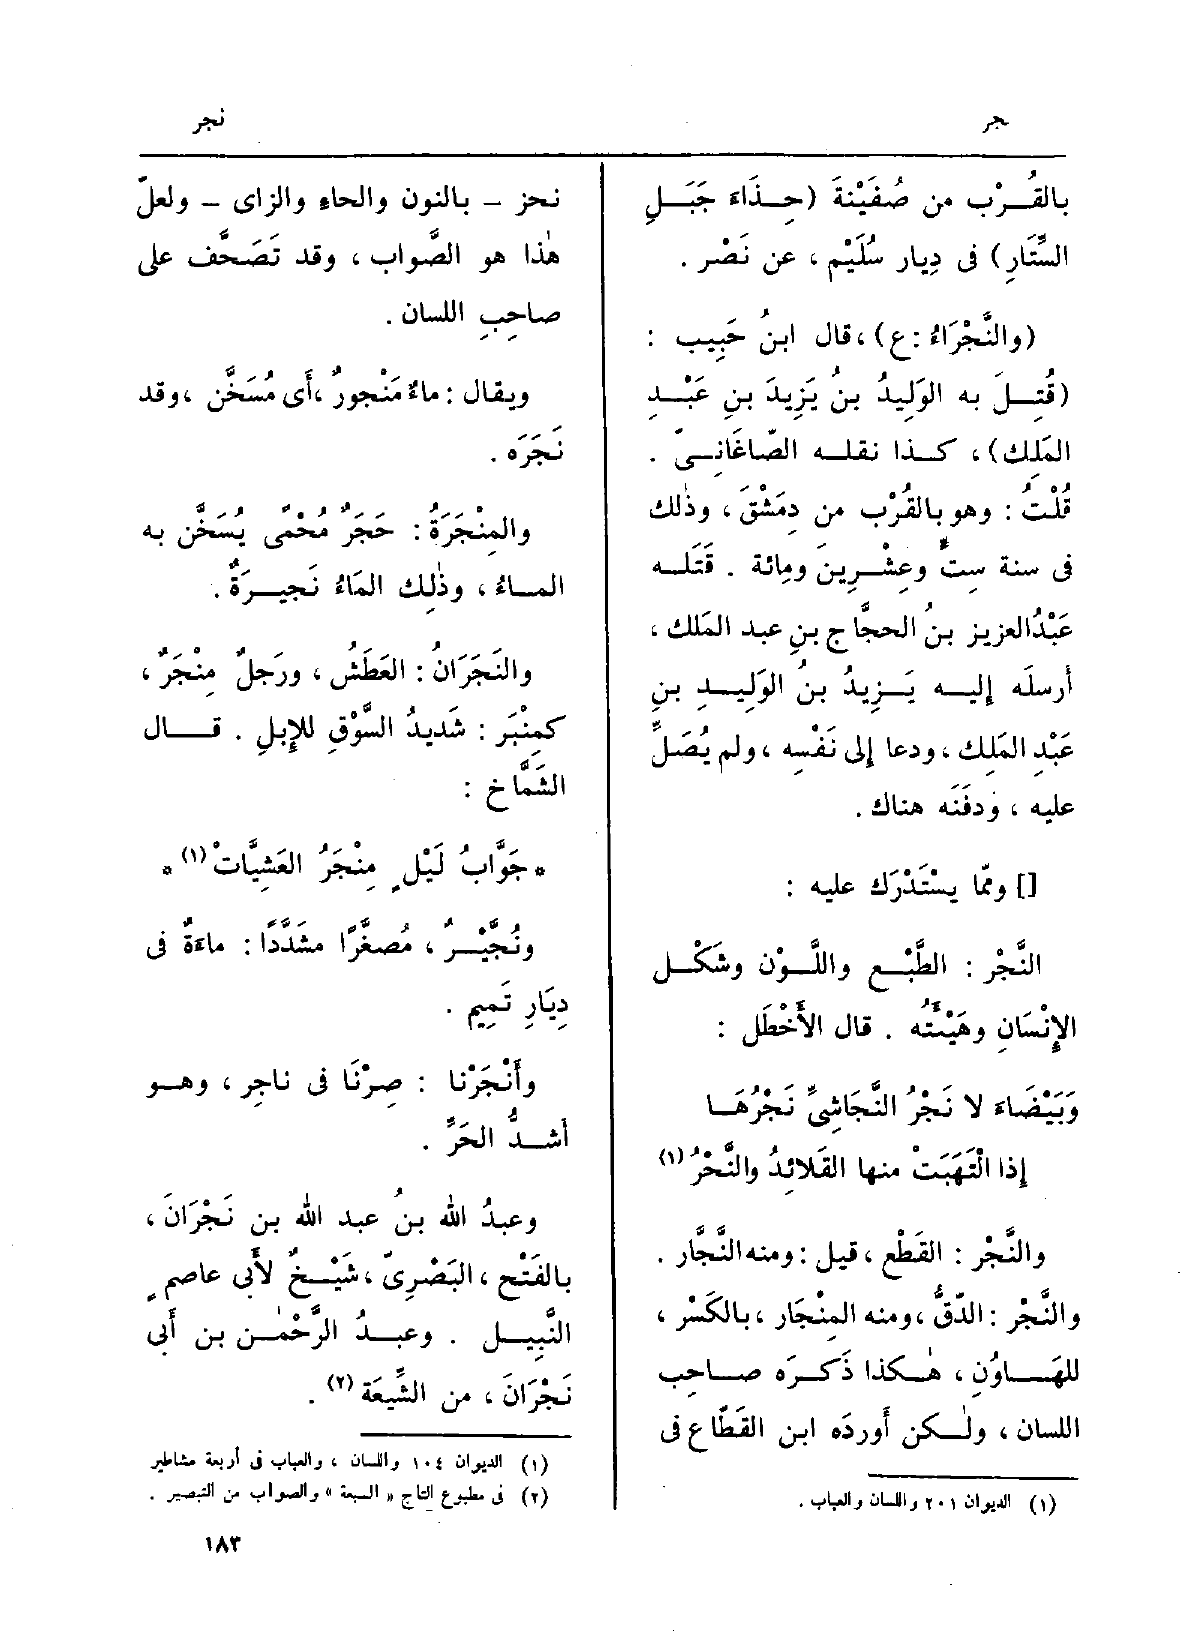 نجر
نجر
بالقُرْب من صُفَيْنَةَ (حِذَاءَ جَبَلِ
السِّتَارِ) فى دِيار سُلَيْمٍ ، عن نَصْر .
(والنَّجْرَاءُ : ع) ، قال ابنُ حَبِيب :
(قُتِلَ به الوَلِيدُ بنُ يَزِيدَ بنِ عَبْدِ
المَلِك) ، كذا نقله الصّاغَانِىّ .
قُلْتُ : وهو بالقُرْب من دِمَشْقَ ، وذٰلك
فى سنة ستٍّ وعِشْرِينَ ومِائة . قَتَلَه
عَبْدُالعزيز بنُ الحجَّاج بنِ عبد المَلك ،
أرسلَه إليه يَزِيدُ بنُ الوَلِيدِ بنِ
عَبْدِ المَلِك ، ودعا إلى نَفْسِه ، ولم يُصَلِّ
عليه ، ودفَنَه هناك .
[] وممّا يسْتَدْرَك عليه :
النَّجْر : الطَّبْع واللَّوْن وشَكْل
الإِنْسَانِ وهَيْئَتُه . قال الأَخْطَل :
وَبَيْضَاءَ لا نَجْرُ النَّجَاشِىِّ نَجْرُهَا
إذا الْتَهَبَتْ منها القَلائدُ والنَّحْرُ (١)
والنَّجْر : القَطْع ، قيل : ومنه النَّجَّار .
والنَّجْر : الدّقُّ ، ومنه المِنْجَار ، بالكَسْر ،
للهَاوُنِ ، هٰكذا ذَكَرَه صاحِب
اللسان ، ولٰكن أَورَده ابن القَطَّاع فى
(١) الديوان ٢٠١ واللسان والعباب .
نحز – بالنون والحاءِ والزاى – ولعلّ
هٰذا هو الصَّواب ، وقد تَصَحَّف على
صاحِبِ اللسان .
ويقال : ماءٌ مَنْجورٌ ، أَى مُسَخَّن ، وقد
نَجَرَه .
والمِنْجَرَةُ : حَجَرٌ مُحْمًى يُسَخَّن به
الماءُ ، وذٰلِك المَاءُ نَجِيرَةٌ .
والنَجَرَانُ : العَطَشُ ، ورَجلٌ مِنْجَرٌ ،
كمِنْبَر : شَديدُ السَّوْقِ للإِبلِ . قال
الشَمَّاخ :
* جَوَّابُ لَيْلٍ مِنْجَرُ العَشِيَّاتْ (١) *
ونُجَّيْرٌ ، مُصغَّرًا مشَدَّدًا : ماءَةٌ فى
دِيَارِ تَمِيم .
وأَنْجَرْنا : صِرْنَا فى ناجِر ، وهو
أَشدُّ الحَرِّ .
وعبدُ الله بنُ عبد الله بن نَجْرَانَ ،
بالفَتْح ، البَصْرِىّ ، شَيْخٌ لأَبى عاصمٍ
النَّبِيل . وعبدُ الرَّحْمٰن بن أَبى
نَجْرَانَ ، من الشِّيعَة (٢) .
(١) الديوان ١٠٤ واللسان ، والعباب فى أربعة مشاطير
(٢) فى مطبوع التاج « السبعة » والصواب من التبصير .
١٨٣